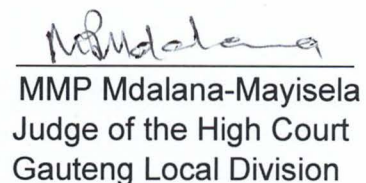 MMP Mdalana-Mayisela
Judge of the High Court
Gauteng Local Division